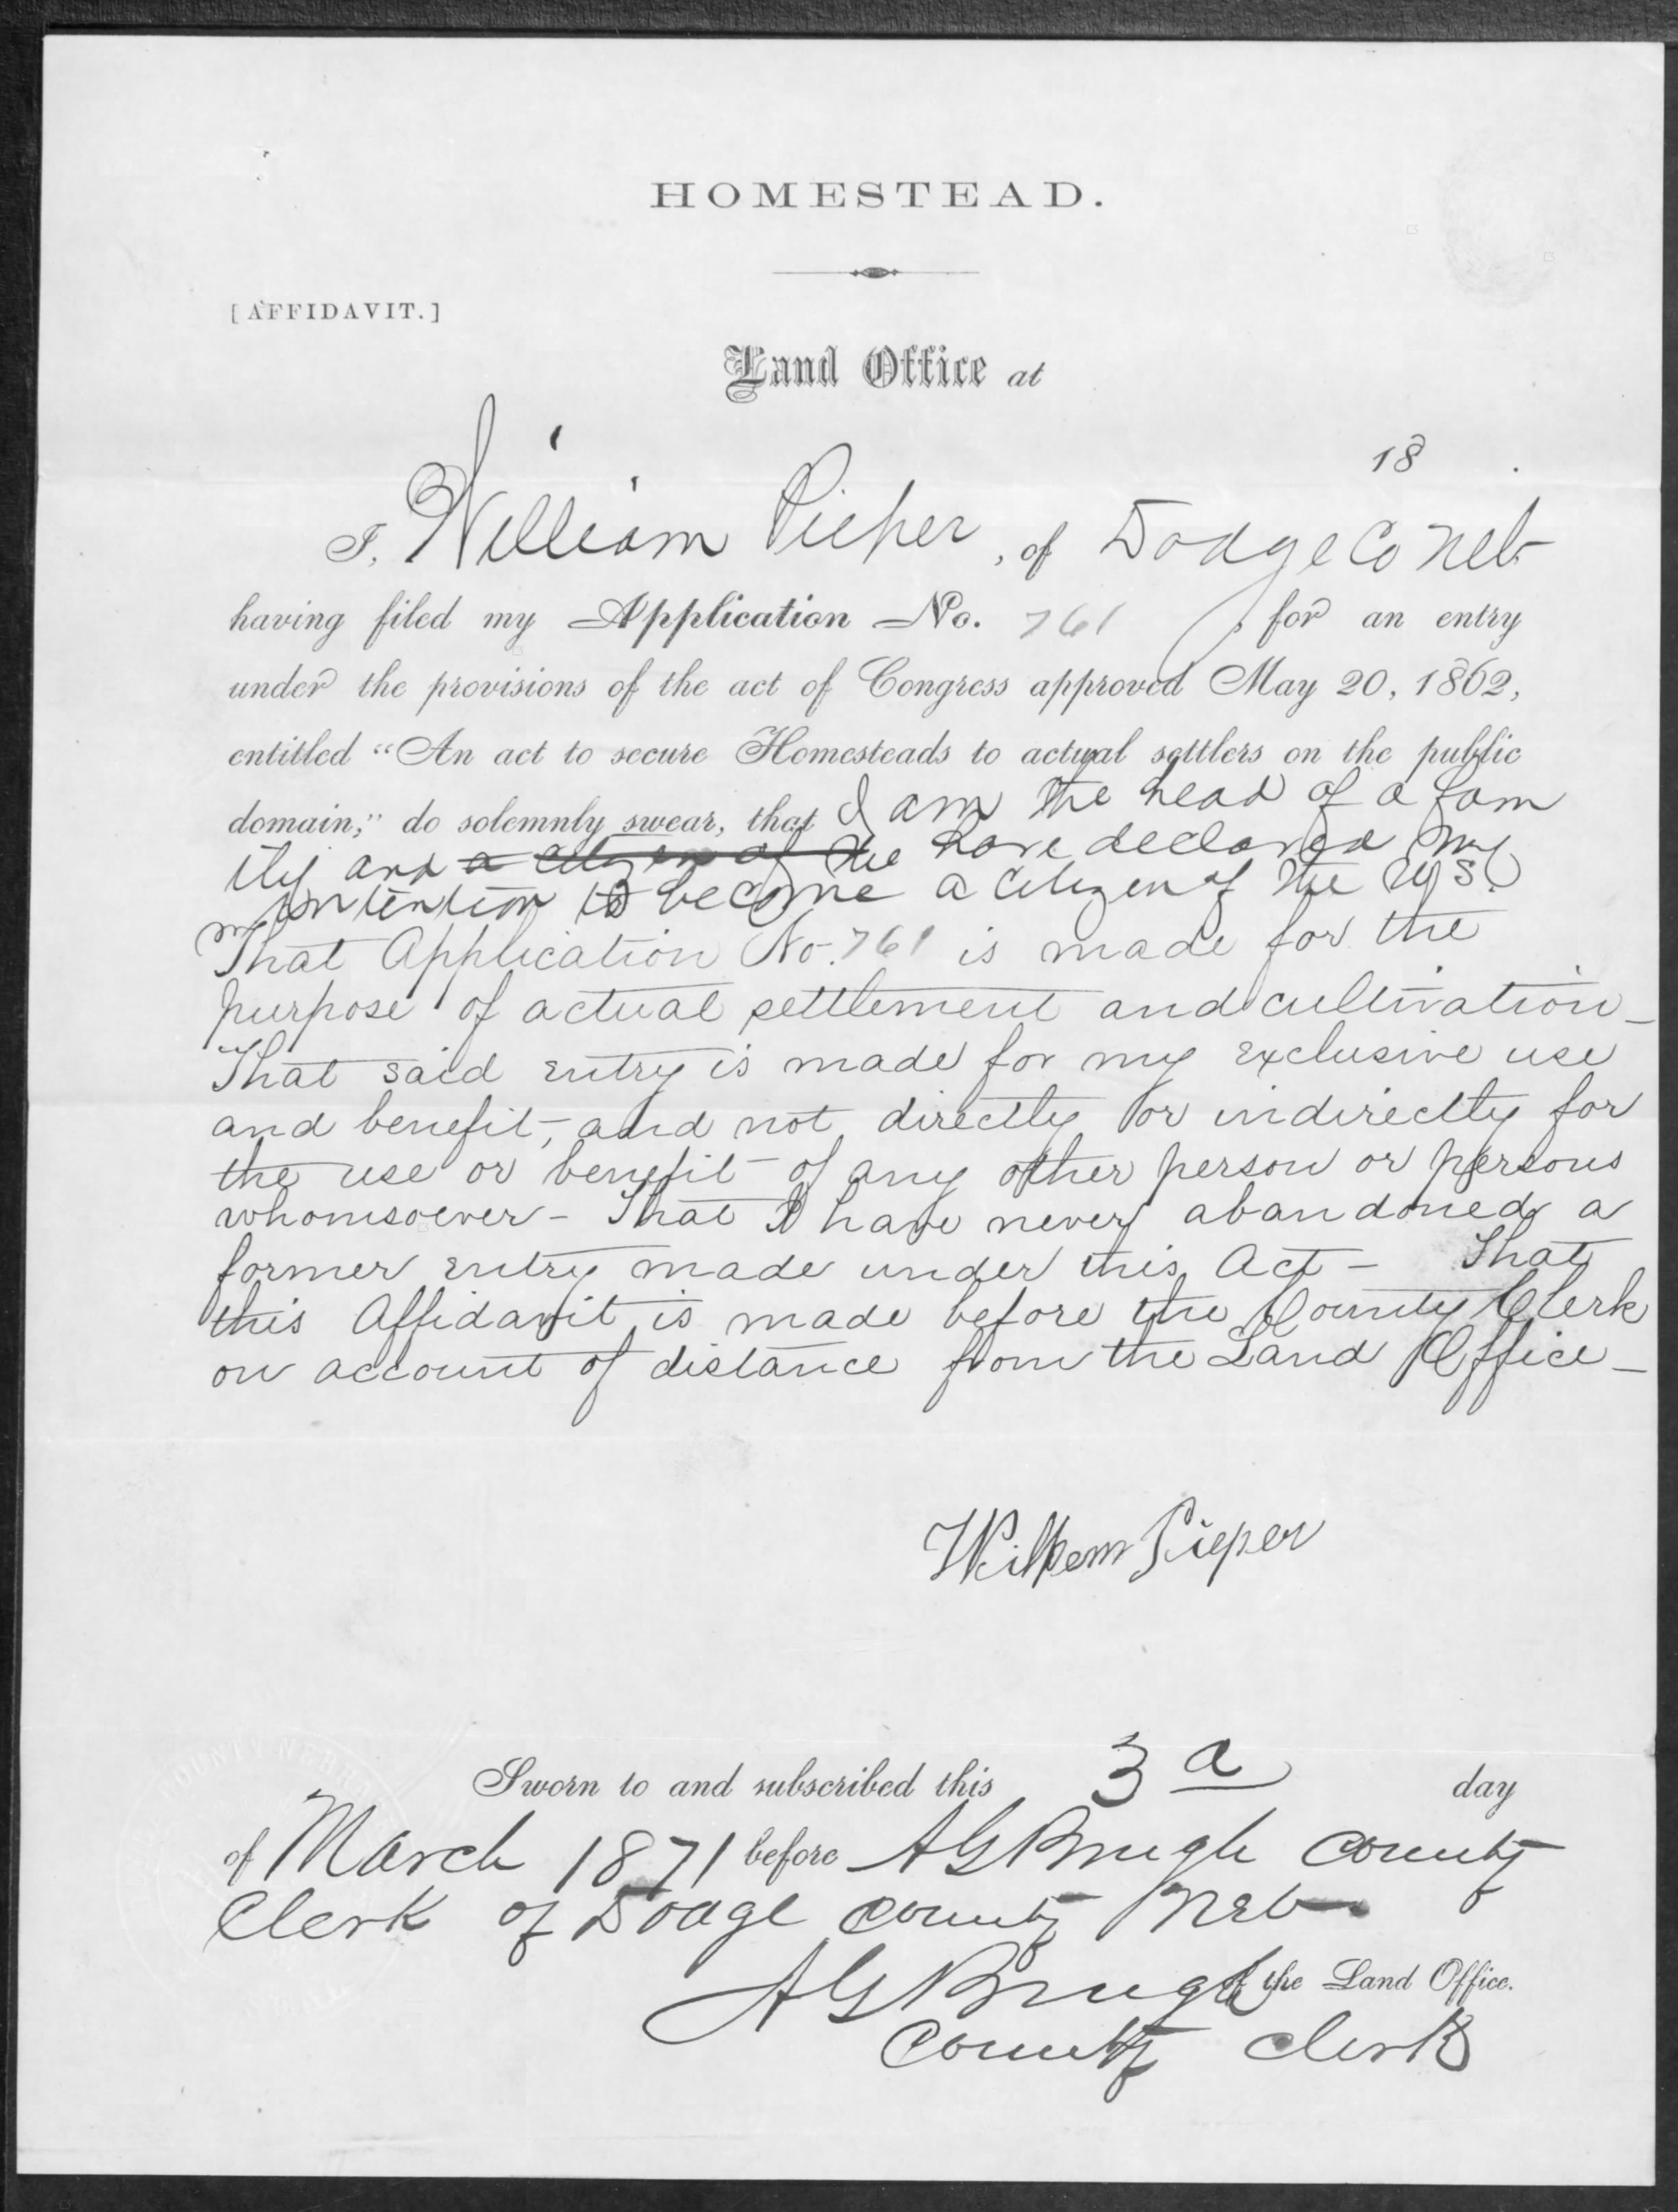 HOMESTEAD.
[AFFIDAVIT.]
Land Office at
18 .
I, William Pieper, of Dodge Co Neb
having filed my Application No. 761, for an entry
under the provisions of the act of Congress approved May 20, 1862,
entitled "An act to secure Homesteads to actual settlers on the public
domain," do solemnly swear, that I am the head of a fam
ily and a citizen of the have declared my
my intention to become a citizen of the U S.
That Application No. 761 is made for the
purpose of actual settlement and cultivation_
That said entry is made for my exclusive use
and benefit, and not directly or indirectly for
the use or benefit of any other person or persons
whomsoever - That I have never abandoned a
former entry made under this Act - That
this Affidavit is made before the County Clerk
on account of distance from the Land Office_
Wilhem Pieper
Sworn to and subscribed this 3d day
of March 1871 before A G Brugh County
Clerk of Dodge County Neb
A G Brugh of the Land Office.
County Clerk